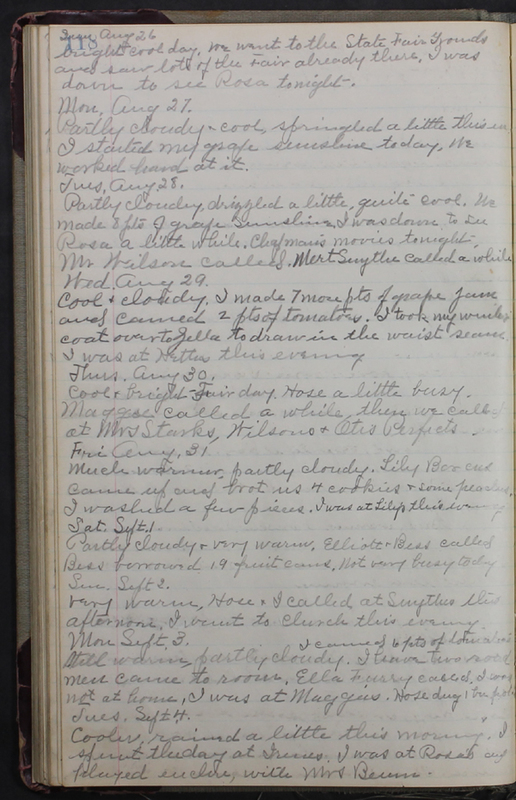 118
Sun. Aug 26
bright cool day. We went to the State Fair Grounds
and saw lots of the Fair already there. I was
down to see Rosa tonight.
Mon. Aug 27.
Partly cloudy & cool, springled a little this
I started my grape sunshine today. We
worked hard at it.
Tues. Aug 28.
Partly cloudy, drizzled a little, quite cool. We
made 8 pts of grape sunshine. I was down to see
Rosa a little while. Chapmans movies tonight.
Mr Wilson called. Mert Smythe called a while
Wed. Aug 29.
Cool & cloudy. I made 7 more pts of grape jam
and canned 2 pts of tomatoes. I took my winter
coat over to Zella to draw in the waist seam.
I was at this evening
Thurs. Aug 30.
Cool & bright Fair day. Hose a little busy.
Maggie called a while, then we called
at Mrs Starks, Wilsons & Otis
Fri Aug. 31
Much warmer, partly cloudy. Lily
came up and brot us 4 cookies & some peaches.
I washed a few pieces. I was at Lilys this evening
Sat. Sept. 1
Partly cloudy & very warm. Elliott & Bess called
Bess borrowed 19 fruit cans. Not very busy today
Sun. Sept 2.
Very warm, Hose & I called at Smythes this
afternoon. I went to church this evening.
Mon Sept. 3. I canned 6 pts of tomatoes
Still warm partly cloudy. I have two
men came to room. Ella Furry called. I was
not at home, I was at Maggies. Hose dug 1 bu
Tues. Sept 4.
Cooler, rained a little this morning. I
spent the day at Irenes. I was at Rosas and
played euchre, with Mrs